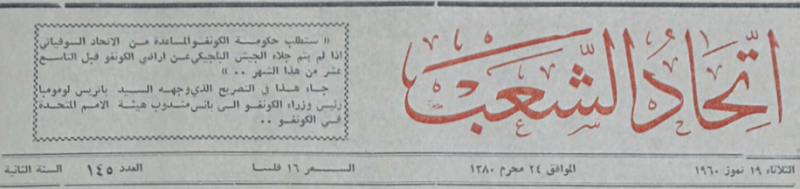 اتحاد الشعب
« ستطلب حكومة الكونغو المساعدة من الاتحاد السوفياتي
اذا لم يتم جلاء الجيش البلجيكي عن اراضي الكونغو قبل التاسع
عشر من هذا الشهر .. »
جاء هذا في التصريح الذي وجهه السيد باتريس لومومبا
رئيس وزراء الكونغو الى بانس مندوب هيئة الامم المتحدة
في الكونغو ..
الثلاثاء ١٩ تموز ١٩٦٠ الموافق ٢٤ محرم ١٣٨٠ السعر ١٦ فلسا العدد ١٤٥ السنة الثانية